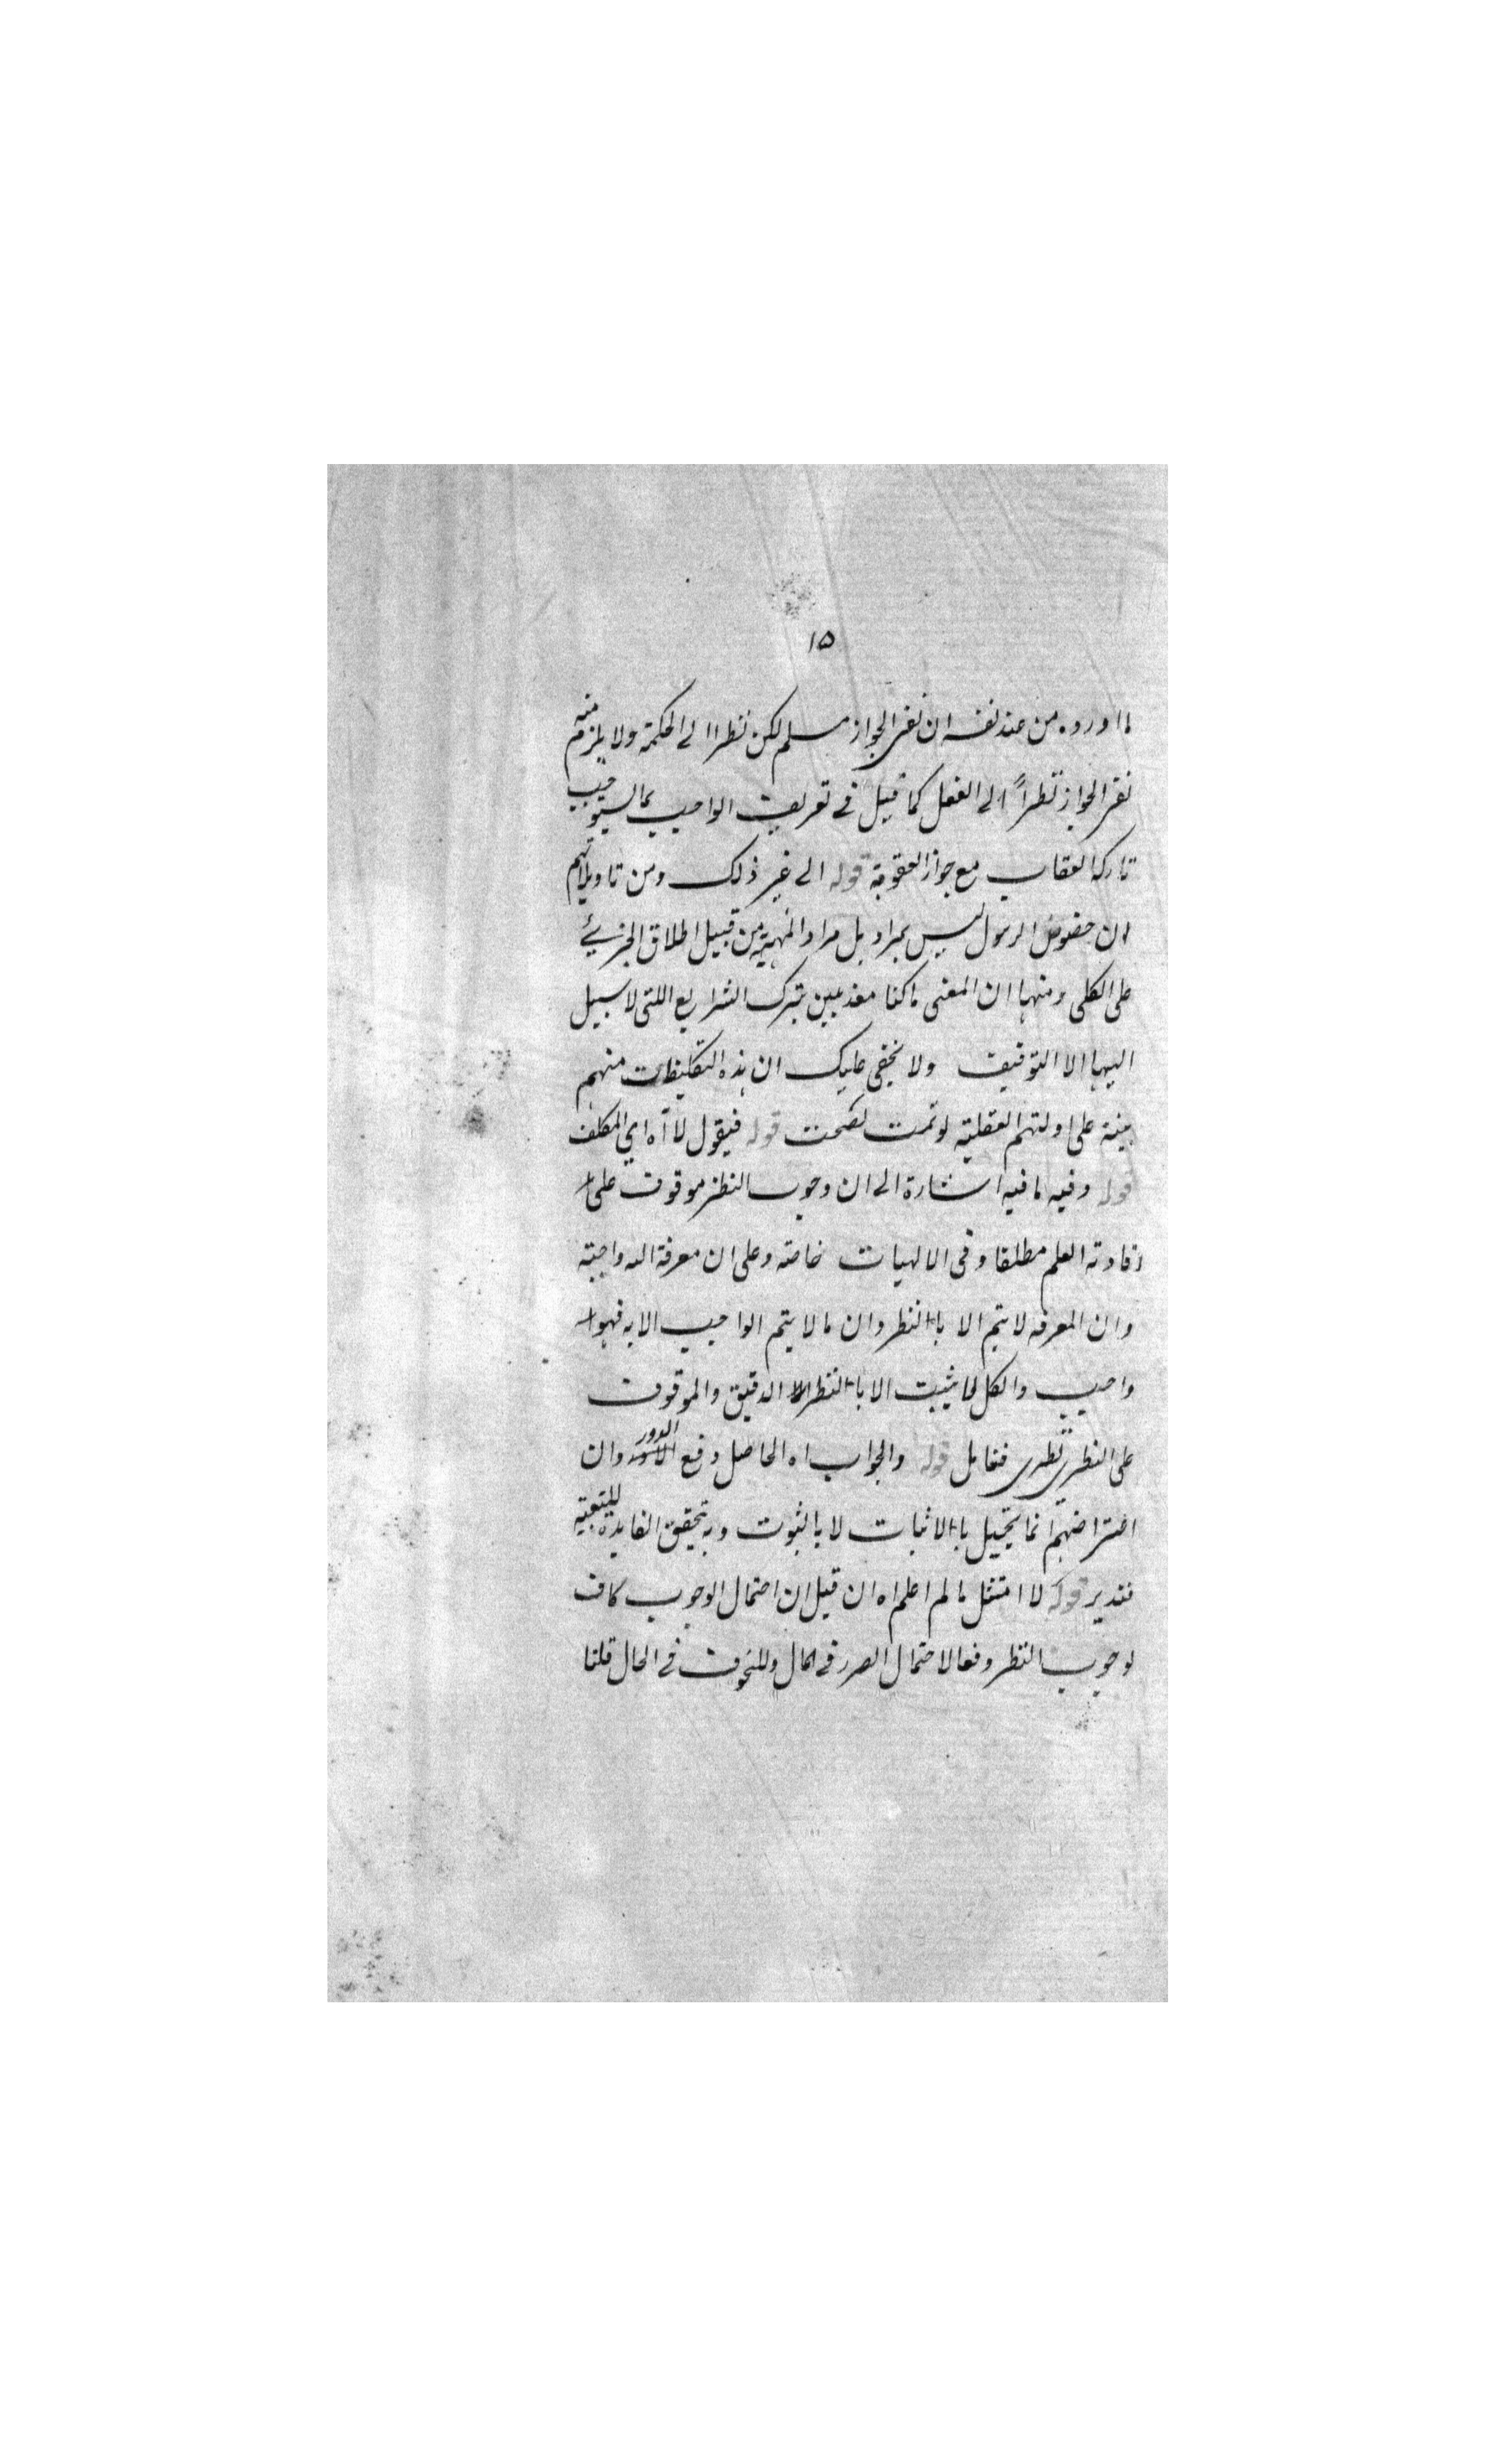 ١٥
ما اورده من عند نفسه ان نفى الجواز مسلم لكن نظرا الى الحكمة ولا يلزم منه
نفى الجواز نظراً الى الفعل كما قيل في تعريف الواجب بما يستوجب
تاركه العقاب مع جواز العقوبة قوله الى غير ذلك ومن تاويلاتهم
ان خصوص الرسول ليس بمراد بل مراد المهية من قبيل اطلاق الجزئي
على الكلى ومنها ان المعنى ما كنا معذبين بترك الشرايع اللتى لا سبيل
اليها الا التوقيف ولا يخفى عليك ان هذه التكليفات منهم
مبينة على ادلتهم العقلية لو تمت لصحت قوله فيقول لا اه اي المكلف
قوله وفيه ما فيه اشارة الى ان وجوب النظر موقوف على
افادته العلم مطلقا وفى الالهيات خاصة وعلى ان معرفة الله واجبة
وان المعرفه لا يتم الا باالنظر وان مالا يتم الواجب الا به فهو
واجب والكل لما يثبت الا باالنظر الدقيق والموقوف
على النظرى نظرى فتامل قوله والجواب اه الحاصل دفع الدور وان
اعتراضهم انما يتخيل باالاثبات لا باالثبوت وبه تحقيق الفايدة للبعثة
فتدبر قوله لا امتثل مالم اعلم اه ان قيل ان احتمال الوجوب كاف
لوجوب النظر دفعا لاحتمال الضرر في المال وللخوف في الحال قلنا